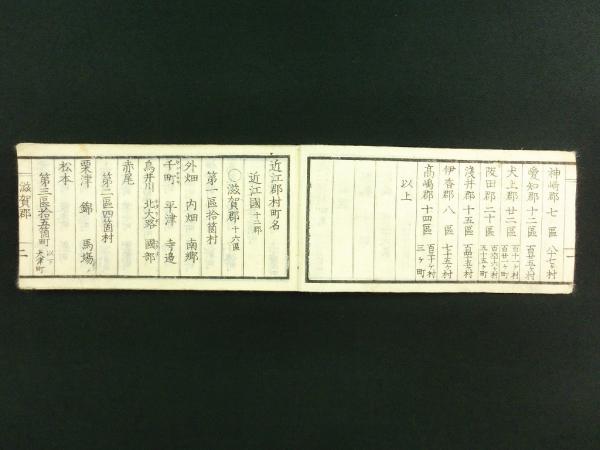 神崎郡 七區 八十七ヶ村
愛知郡 十二區 百廿五ヶ村
犬上郡 廿二區 百十一ヶ村 百廿一ヶ町
阪田郡 二十區 百六十六ヶ村 五十五ヶ町
淺井郡 十五區 百四十五ヶ村
伊香郡 八區 七十五ヶ村
高嶋郡 十四區 三ヶ町
以上
近江郡村町名
近江國 十二郡
〇滋賀郡 十六區
第一區拾箇村
外畑 内畑 南郷
千町 平津 寺邉
鳥井川 北大路 國部
赤尾
第二區四箇村
栗津 錦 馬場
松本
第三區拾五箇町 以下大津町
滋賀郡